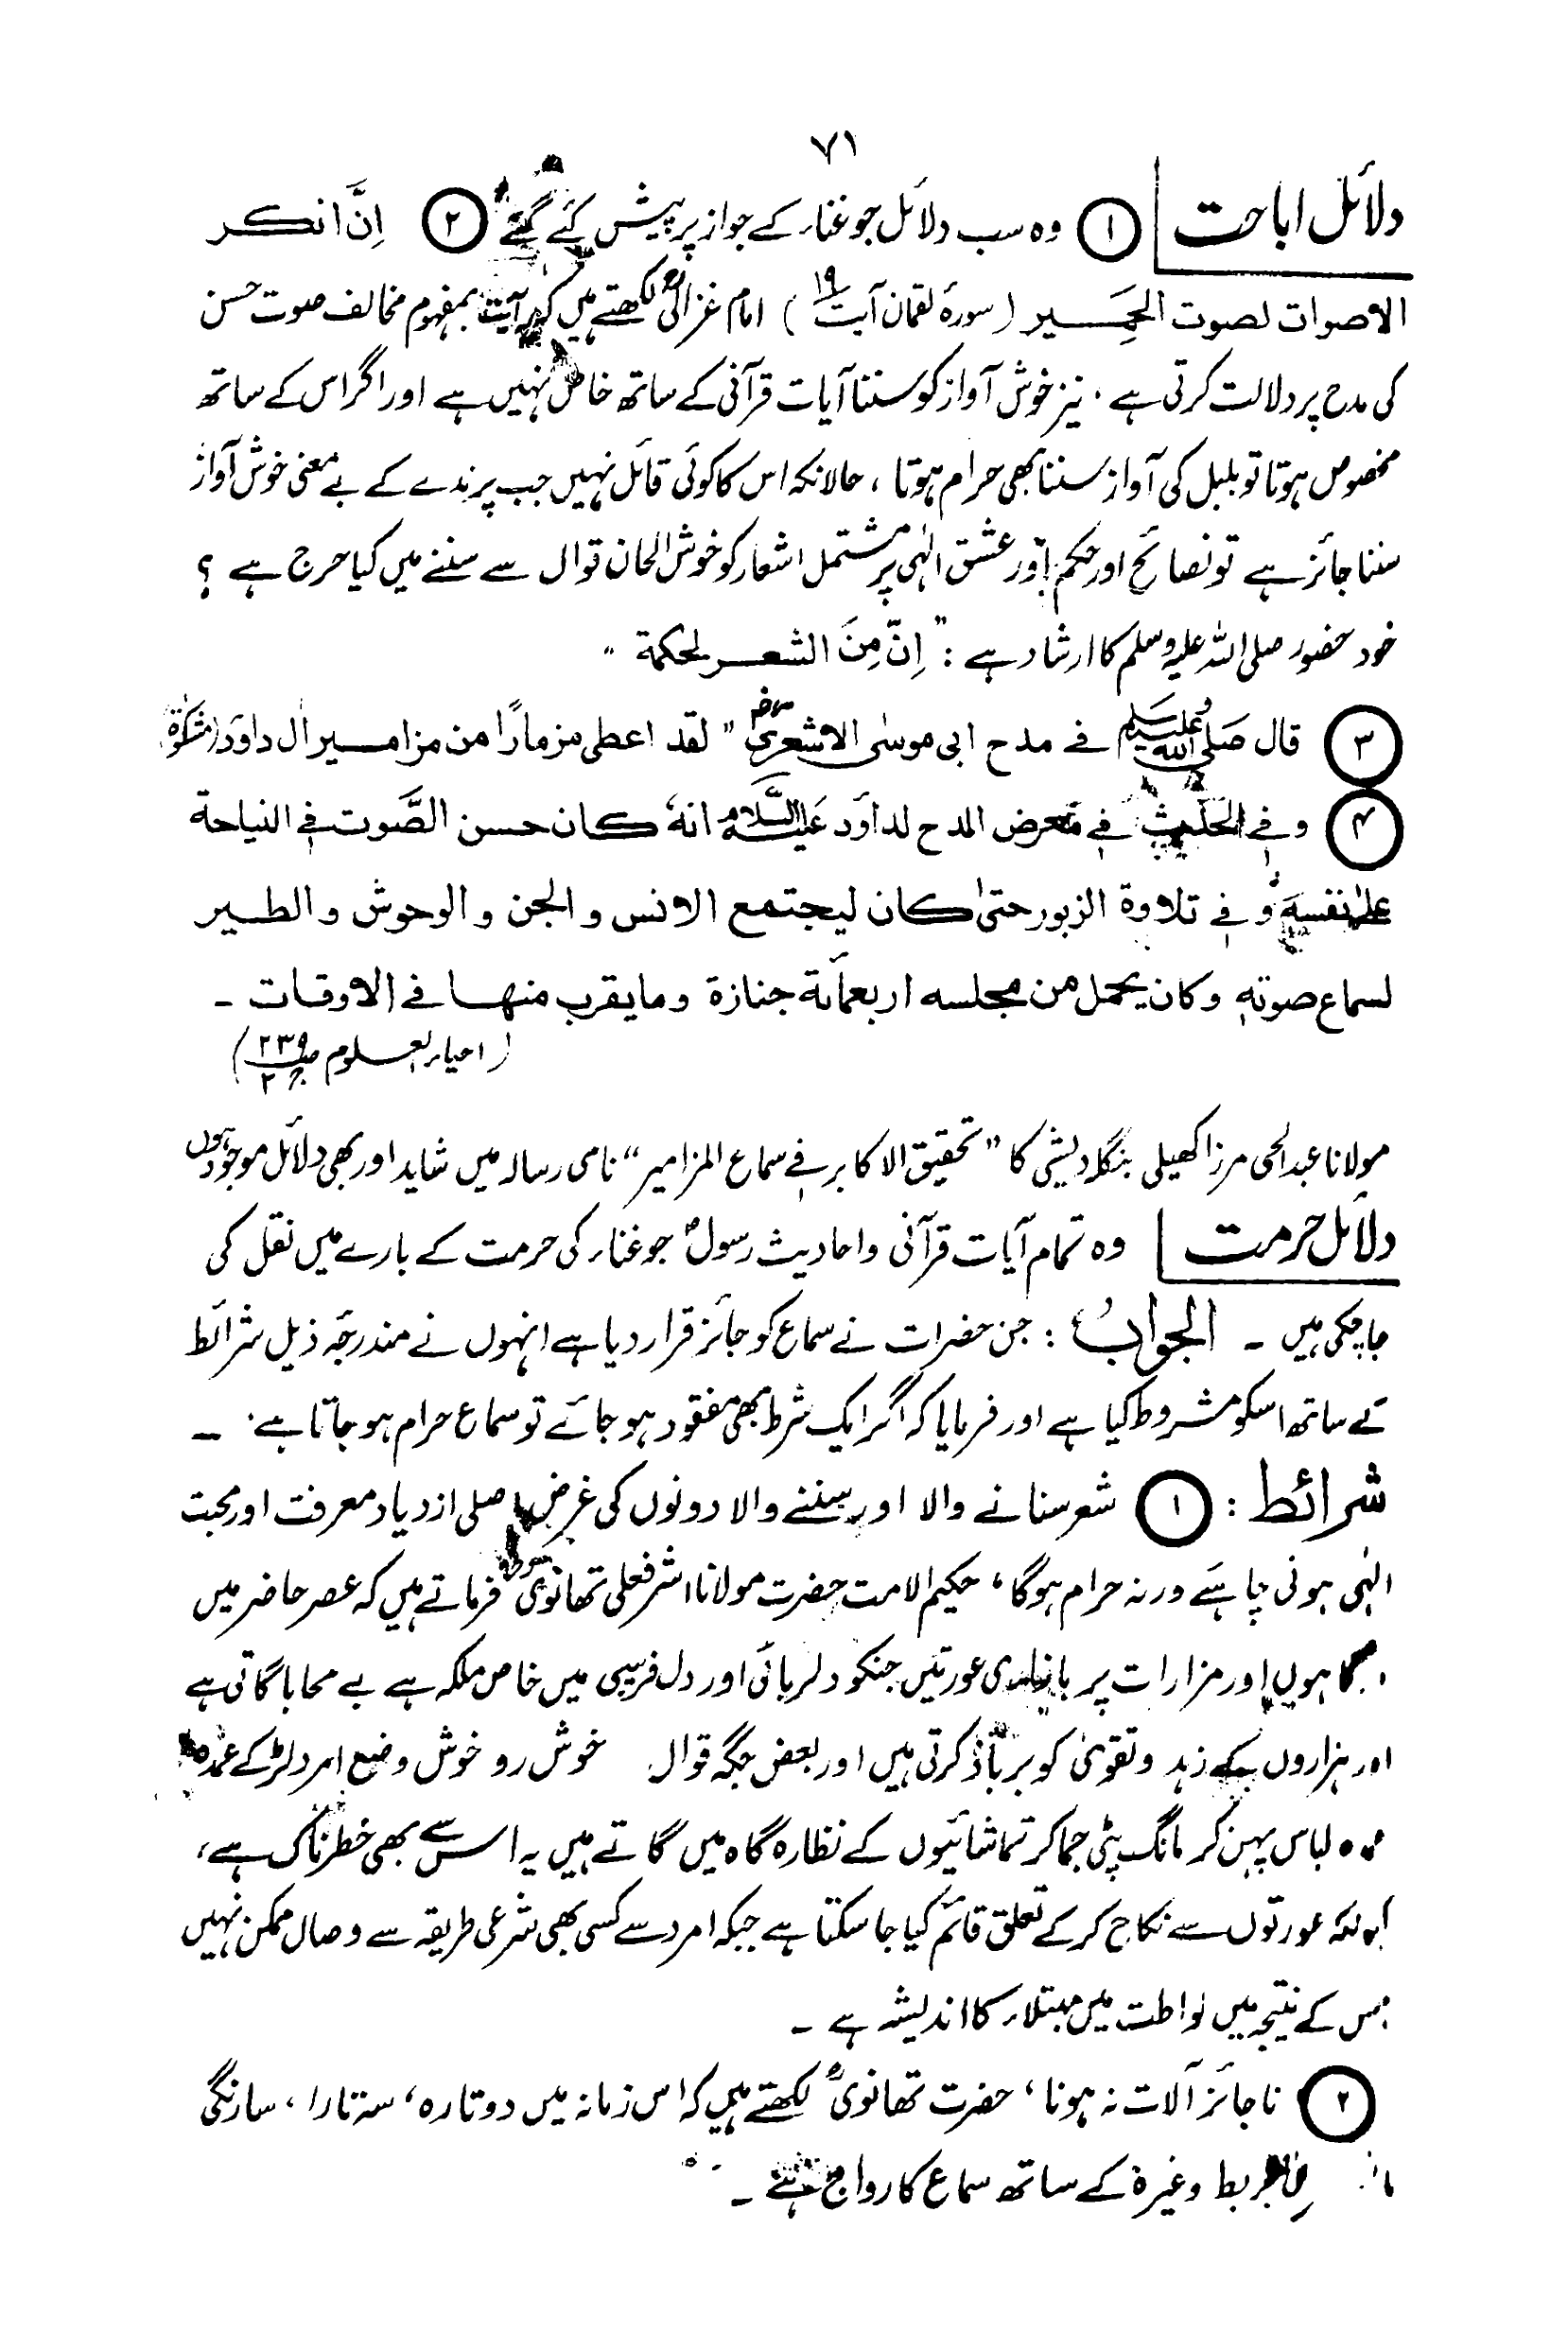 ۷۱
دلائل اباحت ① وہ سب دلائل جو غناء کے جواز پر پیش کئے گئے ② اِنَّ انکر
الاصوات لصوت الحَمِیر (سورۂ لقمان آیت ۱۹) امام غزالیؒ لکھتے ہیں کہ یہ آیت بمفہوم مخالف صوت حسن
کی مدح پر دلالت کرتی ہے ۔ نیز خوش آواز کو سننا آیات قرآنی کے ساتھ خاص نہیں ہے اور اگر اس کے ساتھ
مخصوص ہوتا تو بلبل کی آواز سننا بھی حرام ہوتا ، حالانکہ اس کا کوئی قائل نہیں جب پرندے کے بے معنی خوش آواز
سننا جائز ہے تو نصائح اور حکم اور عشق الٰہی پر مشتمل اشعار کو خوش الحان قوال سے سننے میں کیا حرج ہے ؟
خود حضور صلی اللہ علیہ وسلم کا ارشاد ہے : " اِنّ مِنَ الشعر لحکمة "
③ قال صَلی اللہ علیہ وسلم فے مدح ابی موسٰی الاشعریؓ " لقد اعطی مزمارًا من مزامیر اٰل داوٗد (مشکوٰة)
④ و فی الحَدیث فی مَعرض المدح لداوٗد عَلیہ السَّلام انہٗ کان حسن الصَّوت فی النیاحة
علٰی نفسہٖ و فی تلاوة الزبور حتیٰ کان لیجتمع الانس و الجن و الوحوش و الطیر
لسماع صوتہٖ وکان یحمل من مجلسہ اربعمأة جنازة وما یقرب منھا فے الاوقات ۔
(احیاء العلوم ص ۲۳۹ ج ۲)
مولانا عبدالحی مرزا کھیلی بنگلہ دیشی کا " تحقیق الاکابر فے سماع المزامیر " نامی رسالہ میں شاید اور بھی دلائل موجود ہوں
دلائل حرمت وہ تمام آیات قرآنی و احادیث رسولؐ جو غناء کی حرمت کے بارے میں نقل کی
جاچکی ہیں ۔ الجوابُ : جن حضرات نے سماع کو جائز قرار دیا ہے انہوں نے مندرجہ ذیل شرائط
کے ساتھ اسکو مشروط کیا ہے اور فرمایا کہ اگر ایک شرط بھی مفقود ہو جائے تو سماع حرام ہو جاتا ہے ۔
شرائط : ① شعر سنانے والا اور سننے والا دونوں کی غرض اصلی ازدیاد معرفت اور محبت
الٰہی ہونی چاہئے ورنہ حرام ہوگا ، حکیم الامت حضرت مولانا اشرفعلی تھانویؒ فرماتے ہیں کہ عصر حاضر میں
گاہوں اور مزارات پر بازاری عورتیں جنکو دلربائی اور دل فریبی میں خاص ملکہ ہے بے محابا گاتی ہے
اور ہزاروں کے زہد و تقویٰ کو برباد کرتی ہیں اور بعض جگہ قوال خوش رو خوش وضع امرد لڑکے عمدہ
عمدہ لباس پہن کر مانگ پٹی جما کر تماشائیوں کے نظارہ گاہ میں گاتے ہیں یہ اس سے بھی خطرناک ہے ،
کیونکہ عورتوں سے نکاح کر کے تعلق قائم کیا جا سکتا ہے جبکہ امرد سے کسی بھی شرعی طریقہ سے وصال ممکن نہیں
جس کے نتیجہ میں لواطت میں مبتلاء کا اندیشہ ہے ۔
② ناجائز آلات نہ ہونا ، حضرت تھانویؒ لکھتے ہیں کہ اس زمانہ میں دوتارہ ، ستارا ، سارنگی
بربط وغیرہ کے ساتھ سماع کا رواج ہے ۔